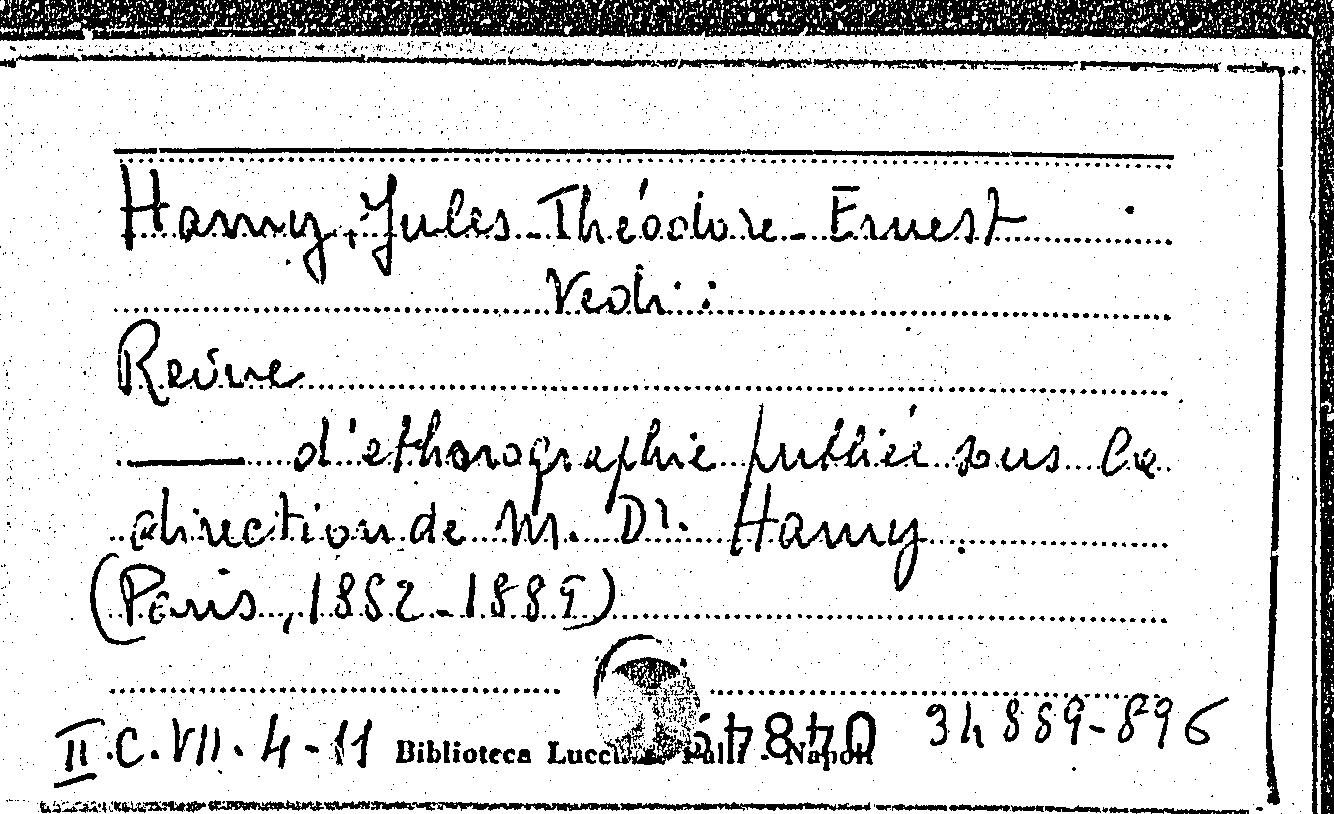 Hamy, Jules-Théodore-Ernest
Vedi:
Revue
—— d'ethnographie publiée sous la
direction de M. Dr. Hamy.
(Paris, 1882-1889)
II.C.VII.4-11 Biblioteca Palli - Napoli 34889-896